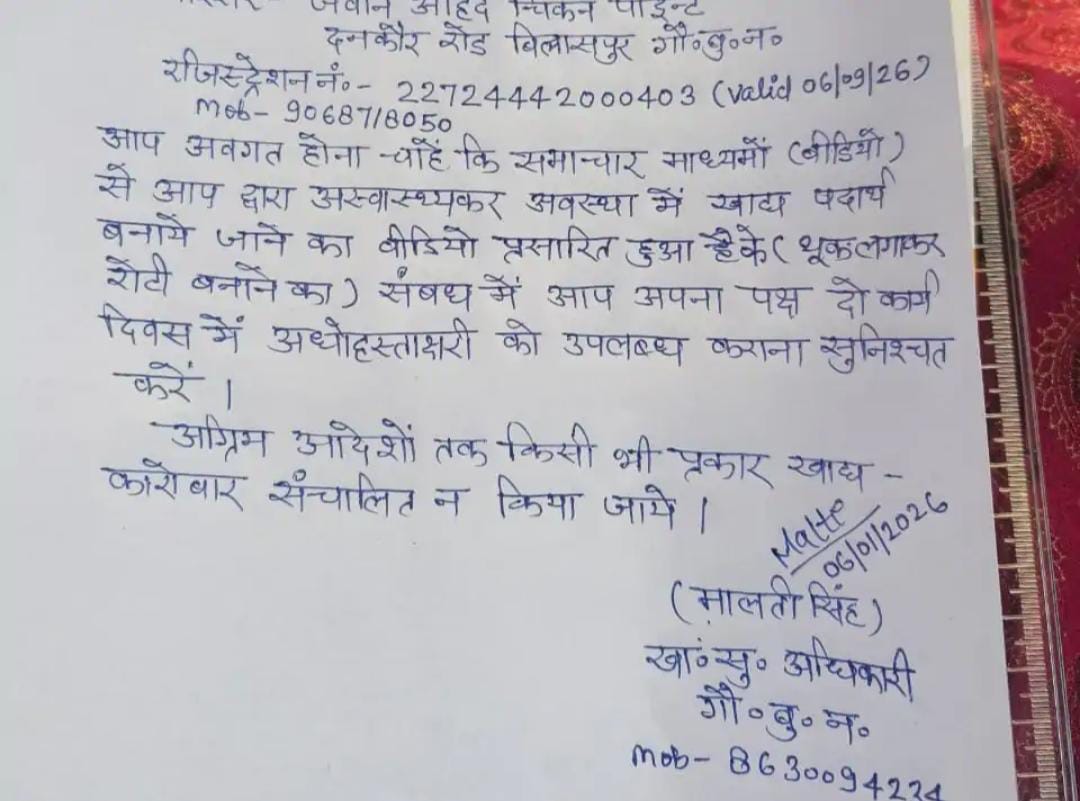 जवान आहद चिकन पाइन्ट
दनकौर रोड बिलासपुर गौ॰बु॰न॰
रजिस्ट्रेशन नं॰- 22724442000403 (valid 06/09/26)
Mob- 9068718050
आप अवगत होना चाहें कि समाचार माध्यमों (वीडियो)
से आप द्वारा अस्वास्थ्यकर अवस्था में खाद्य पदार्थ
बनाये जाने का वीडियो प्रसारित हुआ है के (थूक लगाकर
रोटी बनाने का) संबध में आप अपना पक्ष दो कार्य
दिवस में अधोहस्ताक्षरी को उपलब्ध कराना सुनिश्चत
करें ।
अग्रिम आदेशों तक किसी भी प्रकार खाद्य -
कारोबार संचालित न किया जाये ।
Malte
06/01/2026
(मालती सिंह)
खा॰सु॰ अधिकारी
गौ॰बु॰न॰
mob- 8630094224